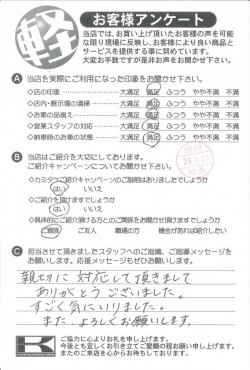 軽
お客様アンケート
当店では、お買い上げ頂いたお客様の声を可能
な限り現場に反映し、お客様により良い商品と
サービスを提供する事に努めています。
大変お手数ですが是非お声をお聞かせ下さい。
A 当店を実際にご利用になった印象をお聞かせ下さい。
◇店の印象 大満足 満足 ふつう やや不満 不満
◇店内・展示場の清掃 大満足 満足 ふつう やや不満 不満
◇お車の品揃え 大満足 満足 ふつう やや不満 不満
◇営業スタッフの対応 大満足 満足 ふつう やや不満 不満
◇納車時のお車の状態 大満足 満足 ふつう やや不満 不満
B 当店はご紹介を大切にしております。
ご紹介キャンペーンについてお聞かせ下さい。
◇カミタウンご紹介キャンペーンのご説明はありましたでしょうか
はい いいえ
◇ご紹介を頂けますでしょうか
はい いいえ
◇具体的にご紹介頂ける方とのご関係をお聞かせ頂けますでしょうか
ご親族 ご友人 職場の方 機会があれば紹介したい
C 担当させて頂きましたスタッフへのご指摘、ご指導メッセージを
お願いします。応援メッセージもぜひお願いします。
親切に対応して頂きまして
ありがとうございました。
すごく気にいりました。
また、よろしくお願いします。
K
ご協力に心よりお礼を申し上げます。
今後とも宜しくお引き立てご愛顧の程お願い申し上げます。
またのご来店を心からお待ちしております。